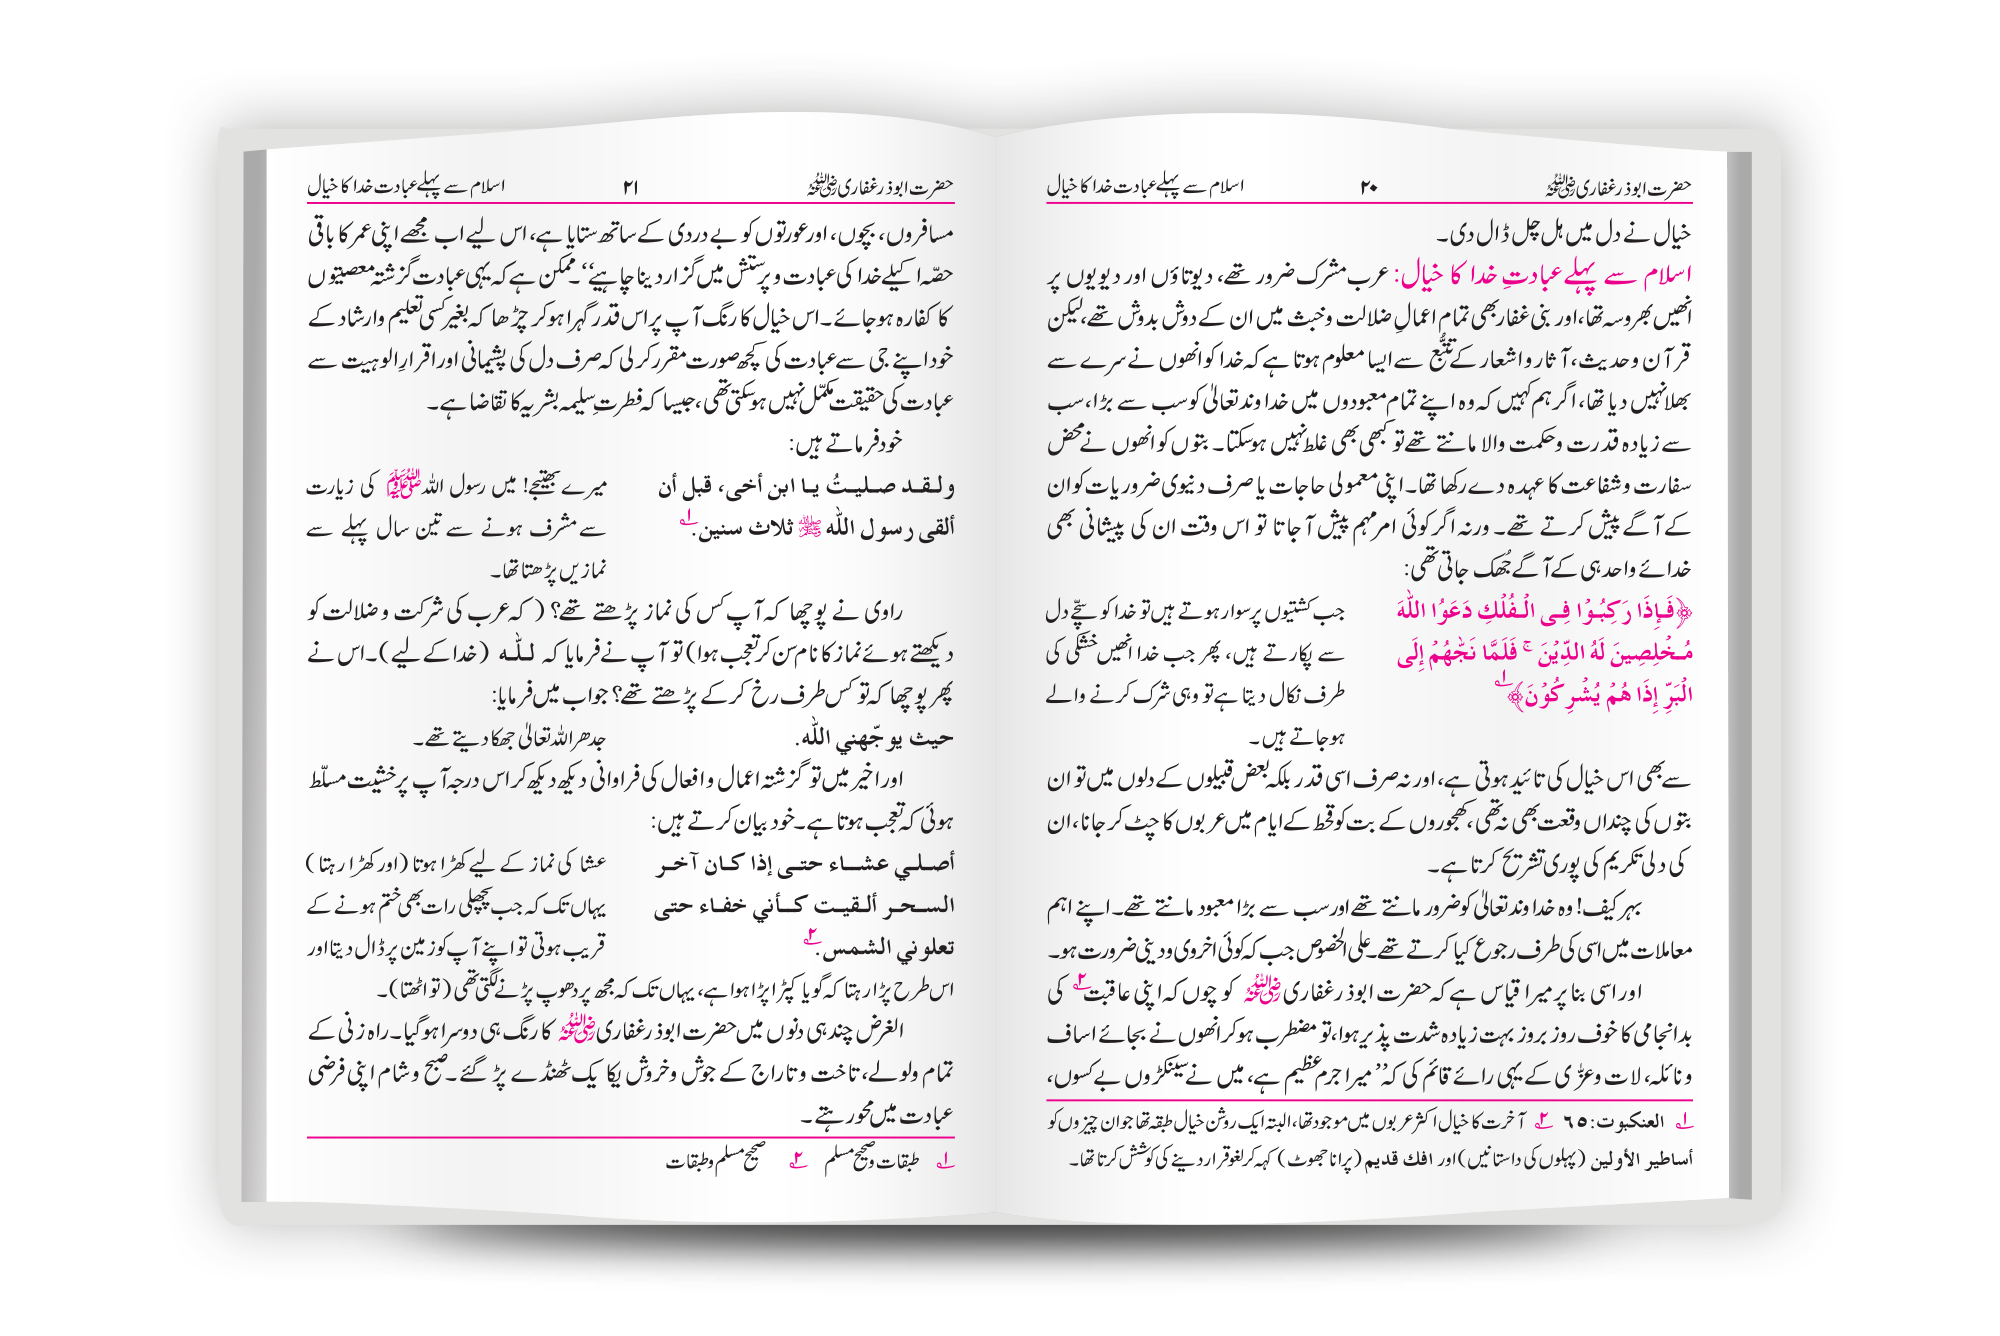 حضرت ابوذر غفاری رضی اللہ عنہ ۲۰ اسلام سے پہلے عبادت خدا کا خیال
خیال نے دل میں ہل چل ڈال دی۔
اسلام سے پہلے عبادتِ خدا کا خیال: عرب مشرک ضرور تھے، دیوتاؤں اور دیویوں پر
انھیں بھروسہ تھا، اور بنی غفار بھی تمام اعمالِ ضلالت وخبث میں ان کے دوش بدوش تھے، لیکن
قرآن وحدیث، آثار واشعار کے تتبُّع سے ایسا معلوم ہوتا ہے کہ خدا کو انھوں نے سرے سے
بھلا نہیں دیا تھا، اگر ہم کہیں کہ وہ اپنے تمام معبودوں میں خداوند تعالیٰ کو سب سے بڑا، سب
سے زیادہ قدرت وحکمت والا مانتے تھے تو کبھی بھی غلط نہیں ہوسکتا۔ بتوں کو انھوں نے محض
سفارت وشفاعت کا عہدہ دے رکھا تھا۔ اپنی معمولی حاجات یا صرف دنیوی ضروریات کو ان
کے آگے پیش کرتے تھے۔ ورنہ اگر کوئی امر مہم پیش آجاتا تو اس وقت ان کی پیشانی بھی
خدائے واحد ہی کے آگے جُھک جاتی تھی:
﴿فَإِذَا رَكِبُوْا فِى الْفُلْكِ دَعَوُا اللّٰهَ جب کشتیوں پر سوار ہوتے ہیں تو خدا کو سچّے دل
مُخْلِصِينَ لَهُ الدِّيْنَ ۚ فَلَمَّا نَجّٰهُمْ إِلَى سے پکارتے ہیں، پھر جب خدا انھیں خشکی کی
الْبَرِّ إِذَا هُمْ يُشْرِكُوْنَ﴾ ۱؂ طرف نکال دیتا ہے تو وہی شرک کرنے والے
ہوجاتے ہیں۔
سے بھی اس خیال کی تائید ہوتی ہے، اور نہ صرف اسی قدر بلکہ بعض قبیلوں کے دلوں میں تو ان
بتوں کی چنداں وقعت بھی نہ تھی، کھجوروں کے بت کو قحط کے ایام میں عربوں کا چٹ کر جانا، ان
کی دلی تکریم کی پوری تشریح کرتا ہے۔
بہرکیف! وہ خداوند تعالیٰ کو ضرور مانتے تھے اور سب سے بڑا معبود مانتے تھے۔ اپنے اہم
معاملات میں اسی کی طرف رجوع کیا کرتے تھے۔ علی الخصوص جب کہ کوئی اخروی ودینی ضرورت ہو۔
اور اسی بنا پر میرا قیاس ہے کہ حضرت ابوذر غفاری رضی اللہ عنہ کو چوں کہ اپنی عاقبت ۲؂ کی
بدانجامی کا خوف روز بروز بہت زیادہ شدت پذیر ہوا، تو مضطرب ہوکر انھوں نے بجائے اساف
ونائلہ، لات وعزّٰی کے یہی رائے قائم کی کہ ’’میرا جرم عظیم ہے، میں نے سینکڑوں بے کسوں،
۱؂ العنكبوت: ٦٥ ۲؂ آخرت کا خیال اکثر عربوں میں موجود تھا، البتہ ایک روشن خیال طبقہ تھا جو ان چیزوں کو
أساطير الأولين (پہلوں کی داستانیں) اور افك قديم (پرانا جھوٹ) کہہ کر لغو قرار دینے کی کوشش کرتا تھا۔
حضرت ابوذر غفاری رضی اللہ عنہ ۲۱ اسلام سے پہلے عبادت خدا کا خیال
مسافروں، بچوں، اور عورتوں کو بے دردی کے ساتھ ستایا ہے، اس لیے اب مجھے اپنی عمر کا باقی
حصّہ اکیلے خدا کی عبادت وپرستش میں گزار دینا چاہیے‘‘۔ ممکن ہے کہ یہی عبادت گزشتہ معصیتوں
کا کفارہ ہوجائے۔ اس خیال کا رنگ آپ پر اس قدر گہرا ہوکر چڑھا کہ بغیر کسی تعلیم وارشاد کے
خود اپنے جی سے عبادت کی کچھ صورت مقرر کرلی کہ صرف دل کی پشیمانی اور اقرارِ الوہیت سے
عبادت کی حقیقت مکمّل نہیں ہوسکتی تھی، جیسا کہ فطرتِ سلیمہ بشریہ کا تقاضا ہے۔
خود فرماتے ہیں:
ولقد صليتُ يا ابن أخى، قبل أن میرے بھتیجے! میں رسول اللہ ﷺ کی زیارت
ألقى رسول الله ﷺ ثلاث سنين. ۱؂ سے مشرف ہونے سے تین سال پہلے سے
نمازیں پڑھتا تھا۔
راوی نے پوچھا کہ آپ کس کی نماز پڑھتے تھے؟ (کہ عرب کی شرکت وضلالت کو
دیکھتے ہوئے نماز کا نام سن کر تعجب ہوا) تو آپ نے فرمایا کہ للّٰه (خدا کے لیے)۔ اس نے
پھر پوچھا کہ تو کس طرف رخ کرکے پڑھتے تھے؟ جواب میں فرمایا:
حيث يوجّهني الله. جدھر اللہ تعالیٰ جھکا دیتے تھے۔
اور اخیر میں تو گزشتہ اعمال وافعال کی فراوانی دیکھ دیکھ کر اس درجہ آپ پر خشیت مسلّط
ہوئی کہ تعجب ہوتا ہے۔ خود بیان کرتے ہیں:
أصلي عشاء حتى إذا كان آخر عشا کی نماز کے لیے کھڑا ہوتا (اور کھڑا رہتا)
السحر ألقيت كأني خفاء حتى یہاں تک کہ جب پچھلی رات بھی ختم ہونے کے
تعلوني الشمس. ۲؂ قریب ہوتی تو اپنے آپ کو زمین پر ڈال دیتا اور
اس طرح پڑا رہتا کہ گویا کپڑا پڑا ہوا ہے، یہاں تک کہ مجھ پر دھوپ پڑنے لگتی تھی (تو اٹھتا)۔
الغرض چند ہی دنوں میں حضرت ابوذر غفاری رضی اللہ عنہ کا رنگ ہی دوسرا ہوگیا۔ راہ زنی کے
تمام ولولے، تاخت وتاراج کے جوش وخروش یکا یک ٹھنڈے پڑ گئے۔ صبح وشام اپنی فرضی
عبادت میں محو رہتے۔
۱؂ طبقات وصحیح مسلم ۲؂ صحیح مسلم وطبقات